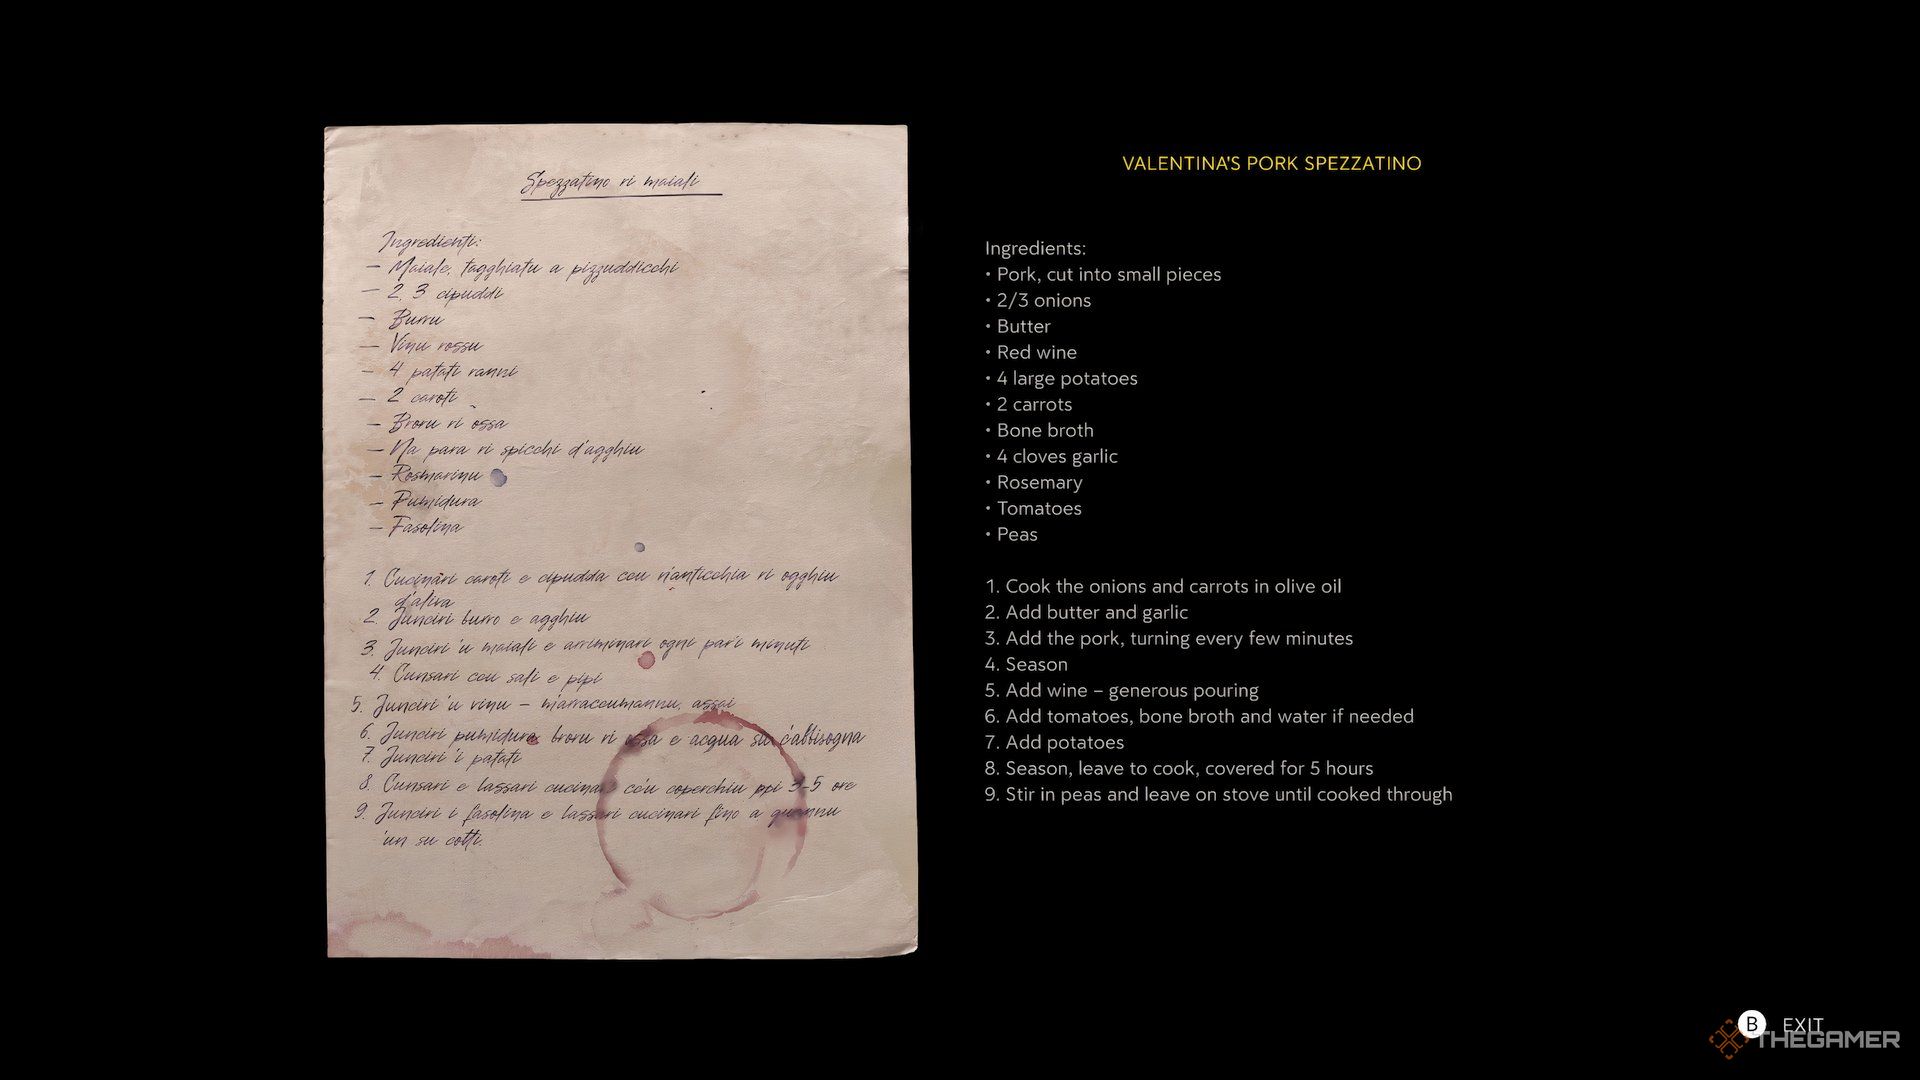 Spezzatino ri maiali
Ingredienti:
– Maiale, tagghiatu a pizzuddicchi
– 2, 3 cipuddi
– Burru
– Vinu rossu
– 4 patati ranni
– 2 caroti
– Broru ri ossa
– Na para ri spicchi d'agghiu
– Rosmarinu
– Pumidura
– Fasolina
1. Cucinari caroti e cipudda cou n'anticchia ri ogghiu
d'aliva
2. Junciri burro e agghiu
3. Junciri 'u maiali e arriminari ogni pari minuti
4. Cunsari cou sali e pipi
5. Junciri 'u vinu – m'arraccumannu, assai
6. Junciri pumidura, broru ri ossa e acqua su c'abbisogna
7. Junciri 'i patati
8. Cunsari e lassari cucinari cou coperchiu ppi 3-5 ore
9. Junciri i fasolina e lassari cucinari fino a quannu
'un su cotti.
VALENTINA'S PORK SPEZZATINO
Ingredients:
• Pork, cut into small pieces
• 2/3 onions
• Butter
• Red wine
• 4 large potatoes
• 2 carrots
• Bone broth
• 4 cloves garlic
• Rosemary
• Tomatoes
• Peas
1. Cook the onions and carrots in olive oil
2. Add butter and garlic
3. Add the pork, turning every few minutes
4. Season
5. Add wine – generous pouring
6. Add tomatoes, bone broth and water if needed
7. Add potatoes
8. Season, leave to cook, covered for 5 hours
9. Stir in peas and leave on stove until cooked through
B EXIT
THEGAMER